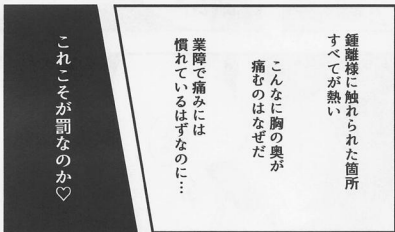 鍾離様に触れられた箇所
すべてが熱い
こんなに胸の奥が
痛むのはなぜだ
業障で痛みには
慣れているはずなのに…
これこそが罰なのか♡